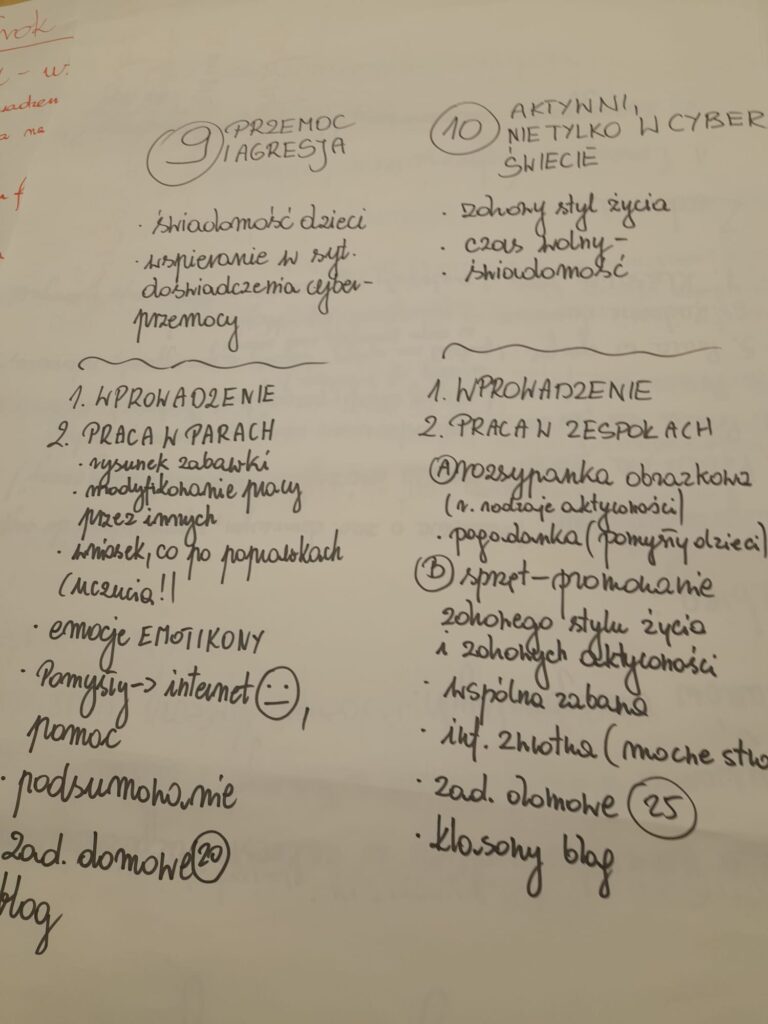 9 PRZEMOC
I AGRESJA
· świadomość dzieci
· wspieranie w syt.
doświadczenia cyber-
przemocy
1. WPROWADZENIE
2. PRACA W PARACH
· rysunek zabawki
· modyfikowanie pracy
przez innych
· wniosek, co po poprawkach
(uczucia!!
· emocje EMOTIKONY
· Pomysły -> internet ,
pomoc
· podsumowanie
zad. domowe 20
blog
10 AKTYWNI,
NIE TYLKO W CYBER
ŚWIECIE
· zdrowy styl życia
· czas wolny -
· świadomość
1. WPROWADZENIE
2. PRACA W ZESPOŁACH
A rozsypanka obrazkowa
(r. rodzaje aktywności)
· pogadanka (pomysły dzieci)
B sprzęt - promowanie
zdrowego stylu życia
i zdrowych aktywności
· wspólna zabawa
· inf. zwrotna (mocne
· zad. domowe 25
· klasowy blog